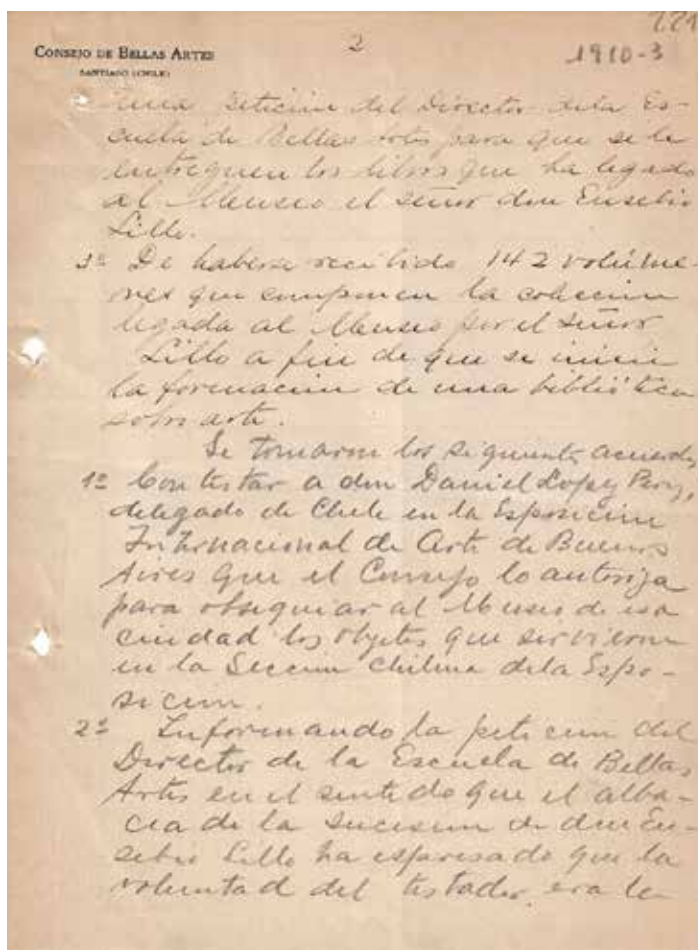 221
2
1910-3
CONSEJO DE BELLAS ARTES
SANTIAGO (CHILE)
una peticion del Director dela Es-
cuela de Bellas Artes para que se le
entreguen los libros que ha legado
al Museo el señor don Eusebio
Lillo.
3º De haberse recibido 142 volúme-
nes que componen la coleccion
legada al Museo por el señor
Lillo a fin de que se inicie
la formacion de una biblioteca
sobre arte.
Se tomaron los siguientes acuerdos
1º Contestar a don Daniel Lopez
delegado de Chile en la Esposicion
Internacional de Arte de Buenos
Aires que el Consejo lo autoriza
para obsequiar al Museo de esa
ciudad los objetos que sirvieron
en la Seccion Chilena dela Espo-
sicion.
2º Informando la peticion del
Director de la Escuela de Bellas
Artes en el sentido que el alba-
cea de la sucesion de don Eu-
sebio Lillo ha espresado que la
voluntad del testador, era la